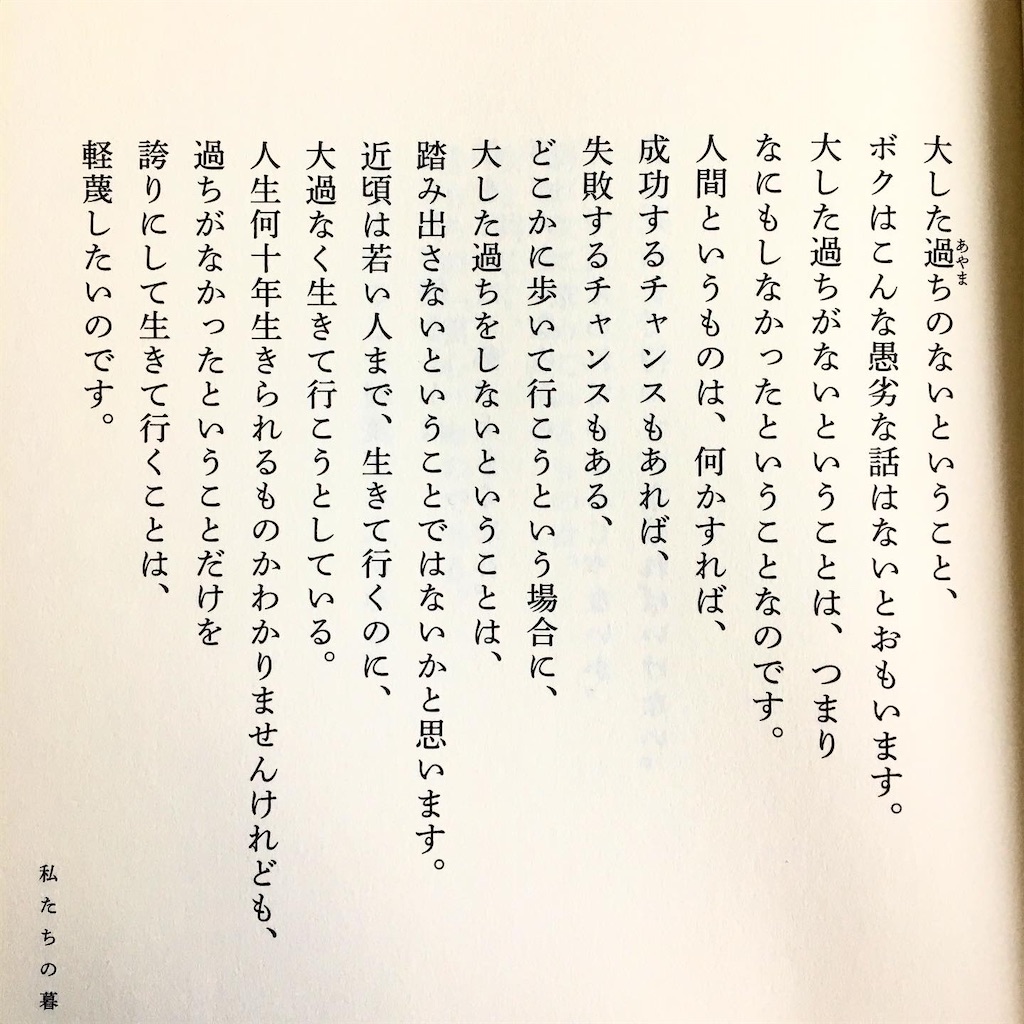 大した過ちのないということ、
あやま
ボクはこんな愚劣な話はないとおもいます。
大した過ちがないということは、つまり
なにもしなかったということなのです。
人間というものは、何かすれば、
成功するチャンスもあれば、
失敗するチャンスもある、
どこかに歩いて行こうという場合に、
大した過ちをしないということは、
踏み出さないということではないかと思います。
近頃は若い人まで、生きて行くのに、
大過なく生きて行こうとしている。
人生何十年生きられるものかわかりませんけれども、
過ちがなかったということだけを
誇りにして生きて行くことは、
軽蔑したいのです。
私たちの暮